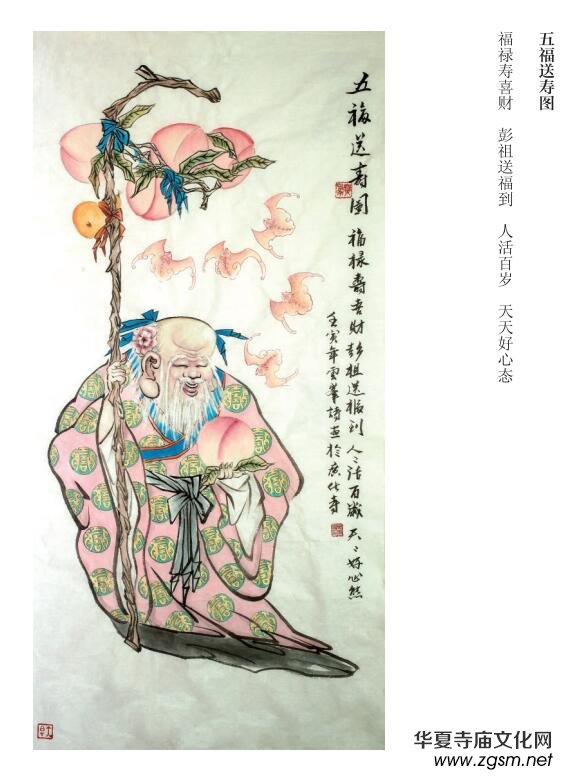 五福送寿图
福禄寿喜财 彭祖送福到 人活百岁 天天好心态
五福送壽圖
福禄壽喜財彭祖送福到人〻活百歲天〻好心態
壬寅年雲峯詩畫於廣化寺
华夏寺庙文化网
www.zgsm.net